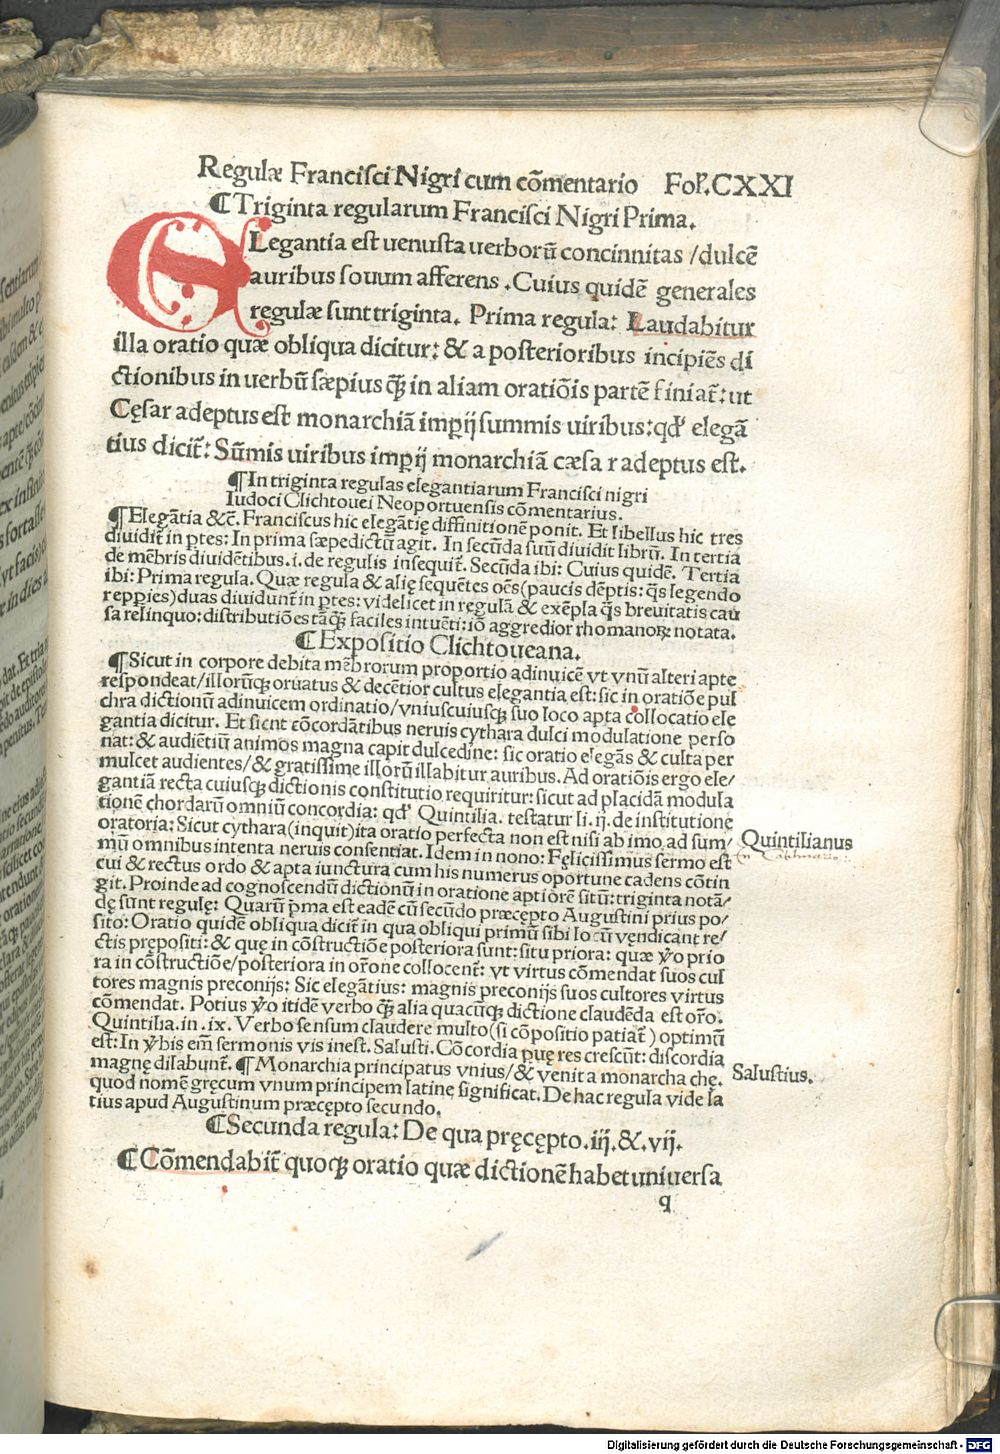 Regulæ Francisci Nigri cum cõmentario Fol̃.CXXI
¶Triginta regularum Francisci Nigri Prima.
ELegantia est uenusta uerborũ concinnitas /dulcẽ
auribus souum afferens .Cuius quidẽ generales
regulæ sunt triginta. Prima regula: Laudabitur
illa oratio quæ obliqua dicitur: & a posterioribus incipiẽs di
ctionibus in uerbũ sæpius q̃ꝫ in aliam oratiõis partẽ finiat̃: ut
Cęsar adeptus est monarchiã imp̱ij summis uiribus: qđ elegã
tius dicit̃: Sũmis uiribus imp̱ij monarchiã cæsa r adeptus est.
¶In triginta regulas elegantiarum Francisci nigri
Iudoci Clichtouei Neoportuensis cõmentarius.
¶Elegãtia &c̃. Franciscus hic elegãtię diffinitionẽ ponit. Et libellus hic tres
diuidit̃ in p̱tes: In prima sæpedictũ agit. In secũda suũ diuidit librũ. In tertia
de mẽbris diuidẽtibus .i. de regulis insequit̃. Secũda ibi: Cuius quidẽ. Tertia
ibi: Prima regula. Quæ regula & alię sequẽtes oẽs (paucis dẽptis: q̃s legendo
rep̱pies) duas diuidunt̃ in p̱tes: videlicet in regulã & exẽpla q̃s breuitatis cau
sa relinquo: distributiões tãq̃ꝫ faciles intuẽti: iõ aggredior rhomanoꝝ notata.
¶Expositio Clichtoueana.
¶Sicut in corpore debita mẽbrorum proportio adinuicẽ vt vnũ alteri apte
respondeat/illorũqꝫ oruatus & decẽtior cultus elegantia est: sic in oratiõe pul
chra dictionũ adinuicem ordinatio/vniuscuiusqꝫ suo loco apta collocatio ele
gantia dicitur. Et sicut cõcordãtibus neruis cythara dulci modulatione perso
nat: & audiẽtiũ animos magna capit dulcedine: sic oratio elegãs & culta per
mulcet audientes/& gratissime illorũ illabitur auribus. Ad oratiõis ergo ele/
gantiã recta cuiusqꝫ dictionis constitutio requiritur: sicut ad placidã modula
tionẽ chordarũ omniũ concordia: qđ Quintilia. testatur li. ij. de institutione
oratoria: Sicut cythara (inquit) ita oratio perfecta non est nisi ab imo ad sum/
mũ omnibus intenta neruis consentiat. Idem in nono: Fęlicissimus sermo est
cui & rectus ordo & apta iunctura cum his numerus oportune cadens cõtin
git. Proinde ad cognoscendũ dictionũ in oratione aptiorẽ sitũ: triginta notã/
dę sunt regulę: Quarũ p̃ma est eadẽ cũ secũdo præcepto Augustini prius po/
sito: Oratio quidẽ obliqua dicit̃ in qua obliqui primũ sibi locũ vẽndicant re/
ctis prepositi: & quę in cõstructiõe posteriora sunt: situ priora: quæ ꝟo prio
ra in cõstructiõe/posteriora in or̃one collocent̃: vt virtus cõmendat suos cul
tores magnis preconijs: Sic elegãtius: magnis preconijs suos cultores virtus
cõmendat. Potius ꝟo itidẽ verbo q̃ꝫ alia quacũqꝫ dictione claudẽda est or̃o.
Quintilia. in .ix. Verbo sensum claudere multo (si cõpositio patiat̃) optimũ
est: In ꝟbis em̃ sermonis vis inest. Salusti. Cõcordia puę res crescũt: discordia
magnę dilabunt̃. ¶Monarchia principatus vnius/& venit a monarcha chę.
quod nomẽ gręcum vnum principem latine significat. De hac regula vide la
tius apud Augustinum præcepto secundo.
Quintilianus
Salustius.
¶Secunda regula: De qua pręcępto .iij. &. vij.
¶Cõmendabit̃ quoqꝫ oratio quæ dictionẽ habet uniuersa
q
Digitalisierung gefördert durch die Deutsche Forschungsgemeinschaft - DFG